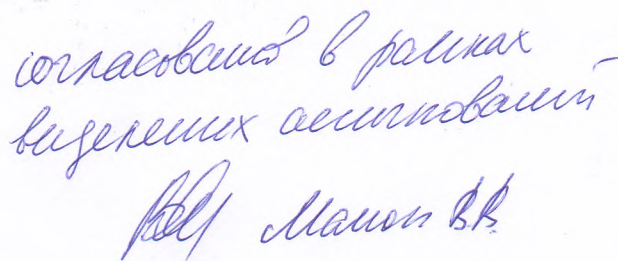 согласовано в рамках
виделених асигнований
Мамон В.В.